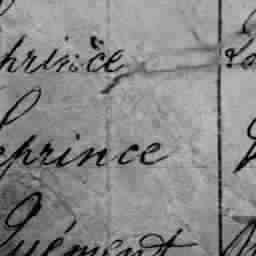 prince
Leprince
Quément